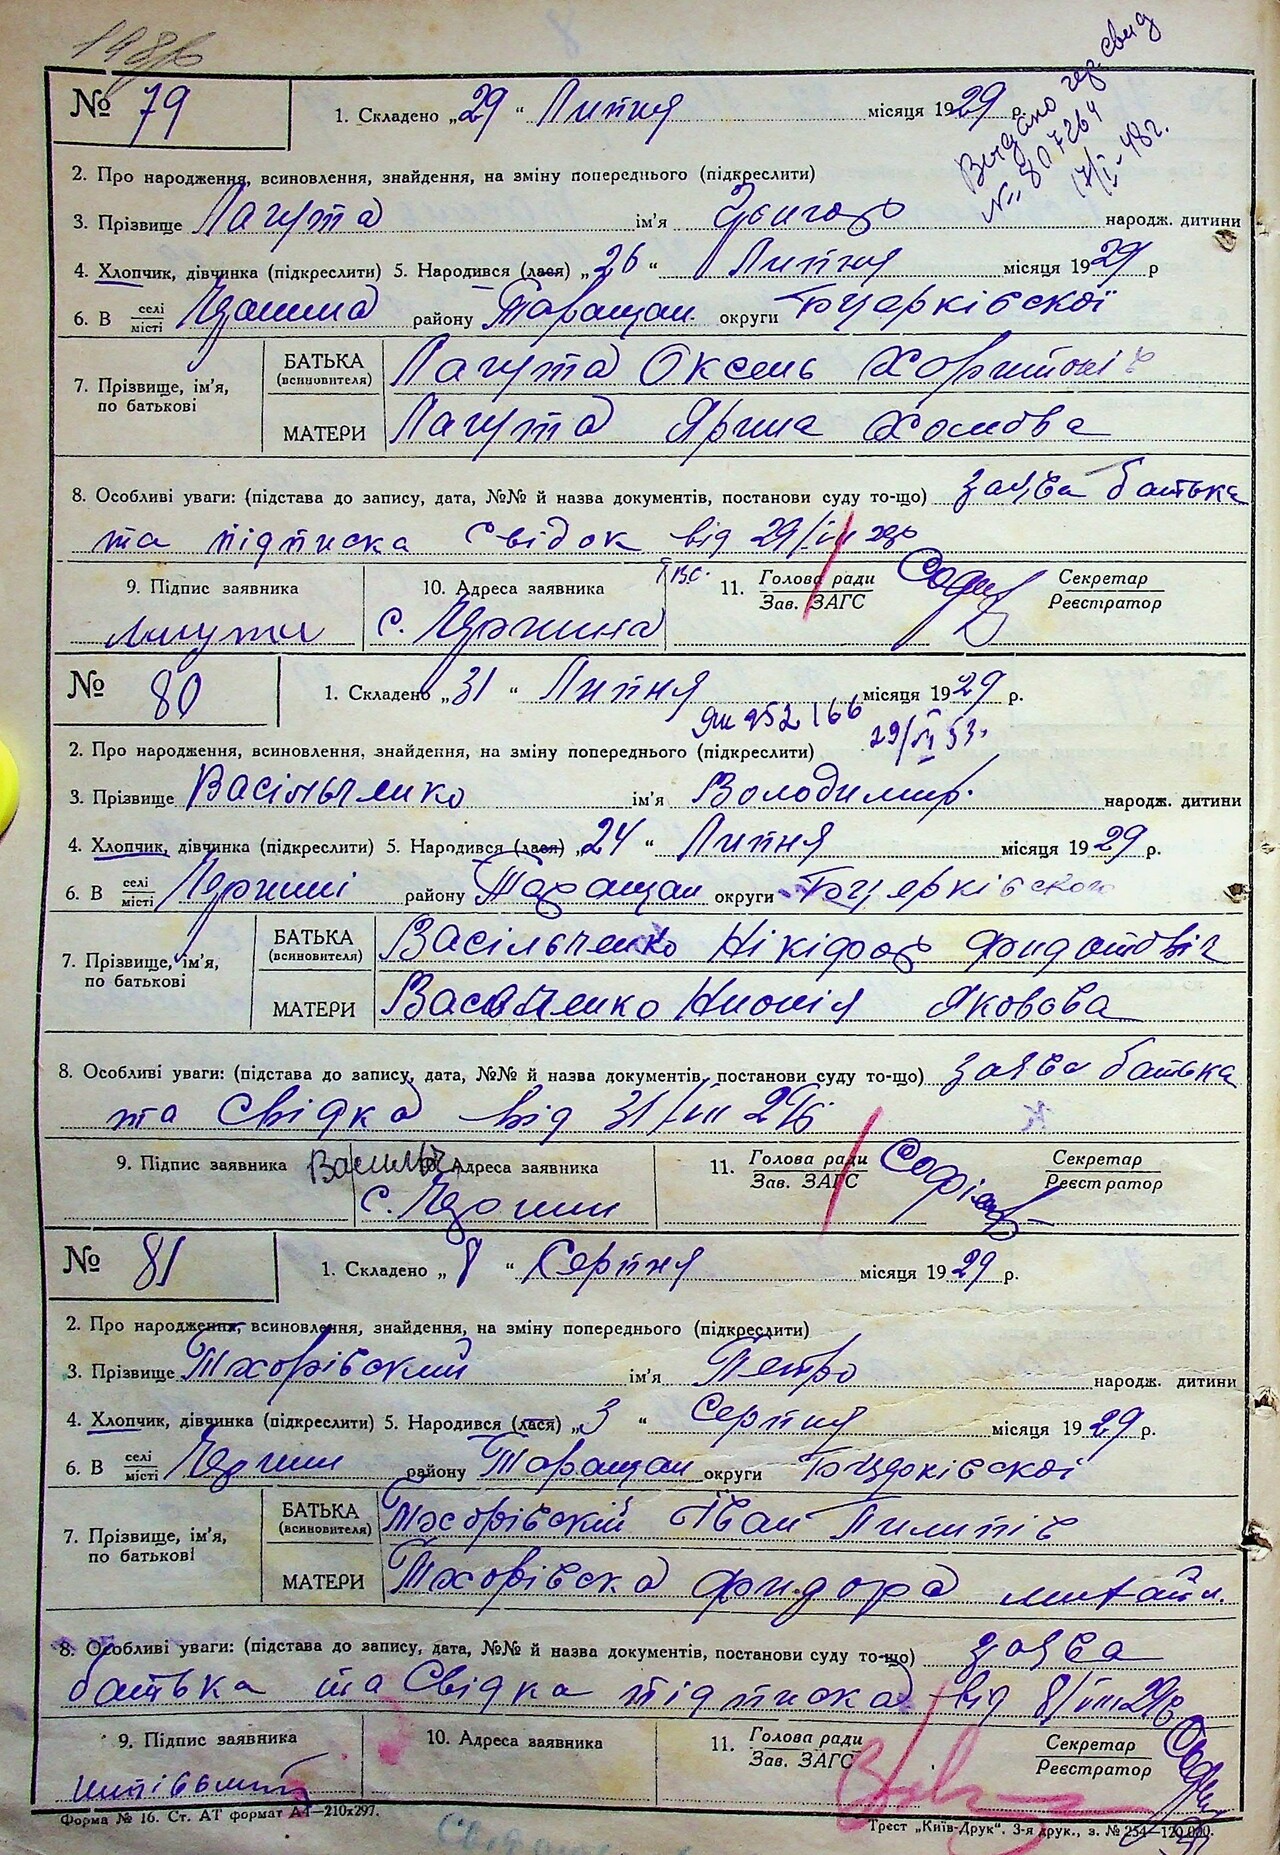 № 79
1. Складено „29“ Липня місяця 1929 р.
Видано
№ 807264
17/I-48 г.
2. Про народження, всиновлення, знайдення, на зміну попереднього (підкреслити)
3. Прізвище Лагута ім'я народж. дитини
4. Хлопчик, дівчинка (підкреслити) 5. Народився (лася) „26“ Липня місяця 1929 р
6. В селі/місті району Таращан. округи Б/церківської
7. Прізвище, ім'я, по батькові
БАТЬКА (всиновителя) Лагута Оксень Харитонів
МАТЕРИ Лагута Ярина Хомова
8. Особливі уваги: (підстава до запису, дата, №№ й назва документів, постанови суду то-що) заява батька
та підписка свідок від 29/VII 29р
9. Підпис заявника 10. Адреса заявника 11. Голова ради/Зав. ЗАГС Секретар/Реєстратор
Лагута с.
№ 80
1. Складено „31“ Липня місяця 1929 р.
952166 29/53.
2. Про народження, всиновлення, знайдення, на зміну попереднього (підкреслити)
3. Прізвище Васільченко ім'я Володимир. народж. дитини
4. Хлопчик, дівчинка (підкреслити) 5. Народився (лася) „24“ Липня місяця 1929 р.
6. В селі/місті району Таращан округи Б/церківского
7. Прізвище, ім'я, по батькові
БАТЬКА (всиновителя) Васільченко Нікіфор
МАТЕРИ Васільченко Яковова
8. Особливі уваги: (підстава до запису, дата, №№ й назва документів, постанови суду то-що) заява батька
та Свідка від 31/VII 29р
9. Підпис заявника Василь Адреса заявника 11. Голова ради/Зав. ЗАГС Секретар/Реєстратор
с.
№ 81
1. Складено „8“ Серпня місяця 1929 р.
2. Про народження, всиновлення, знайдення, на зміну попереднього (підкреслити)
3. Прізвище Тхорівский ім'я Петро народж. дитини
4. Хлопчик, дівчинка (підкреслити) 5. Народився (лася) „3“ Серпня місяця 1929 р.
6. В селі/місті району Таращан округи Б/церківскої
7. Прізвище, ім'я, по батькові
БАТЬКА (всиновителя) Тхорівский Іван Пилипів
МАТЕРИ Тхорівска Михайл.
8. Особливі уваги: (підстава до запису, дата, №№ й назва документів, постанови суду то-що) заява
батька та Свідка підписка від 8/VIII 29р
9. Підпис заявника 10. Адреса заявника 11. Голова ради/Зав. ЗАГС Секретар/Реєстратор
Форма № 16. Ст. АТ формат А4—210х297.
Трест „Київ-Друк“. 3-я друк., з. № 254—120.000.